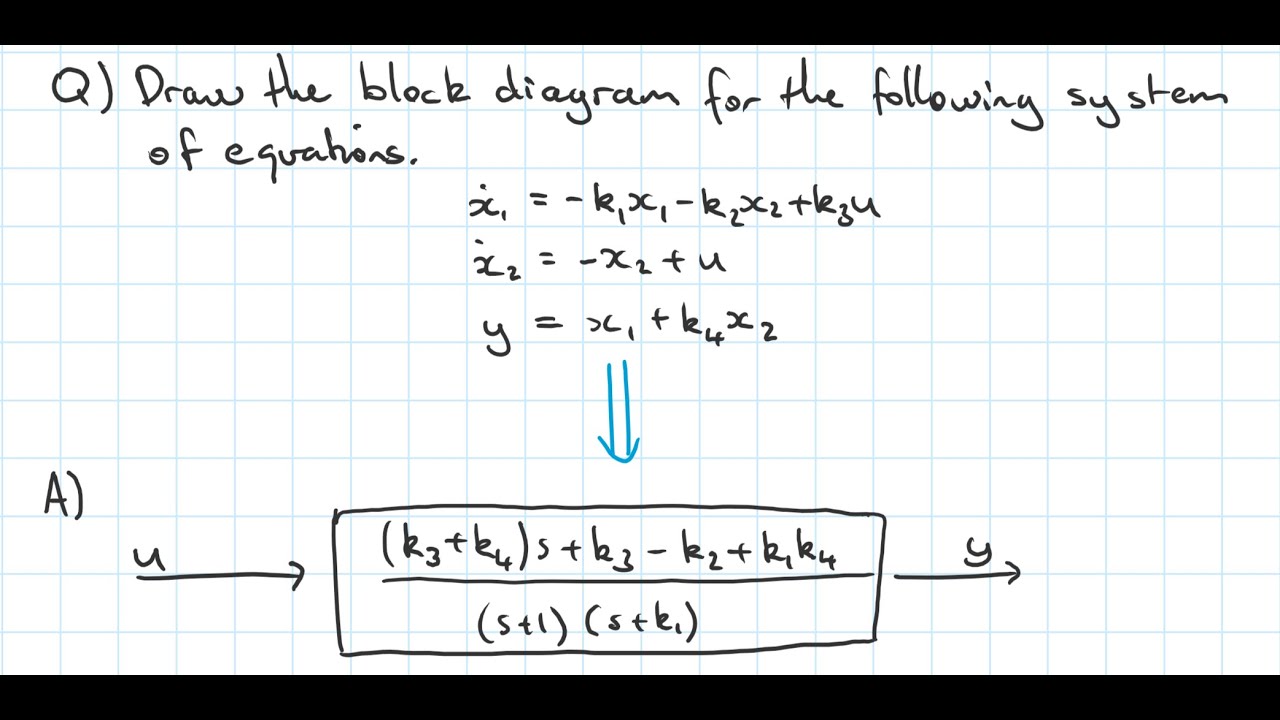 Q) Draw the block diagram for the following system
of equations.
ẋ₁ = -k₁x₁ - k₂x₂ + k₃u
ẋ₂ = -x₂ + u
y = x₁ + k₄x₂
A)
u
(k₃+k₄)s + k₃ - k₂ + k₁k₄
(s+1) (s+k₁)
y